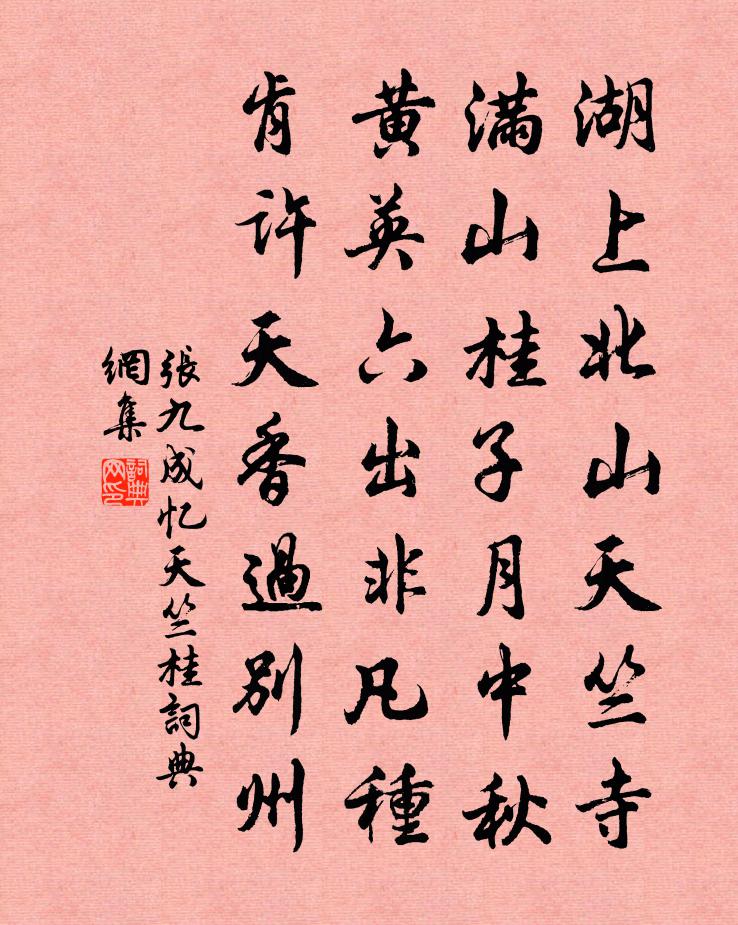 湖上北山天竺寺
滿山桂子月中秋
黄英六出非凡種
肯许天香過别州
張九成忆天竺桂詞典
網集
詞典网印